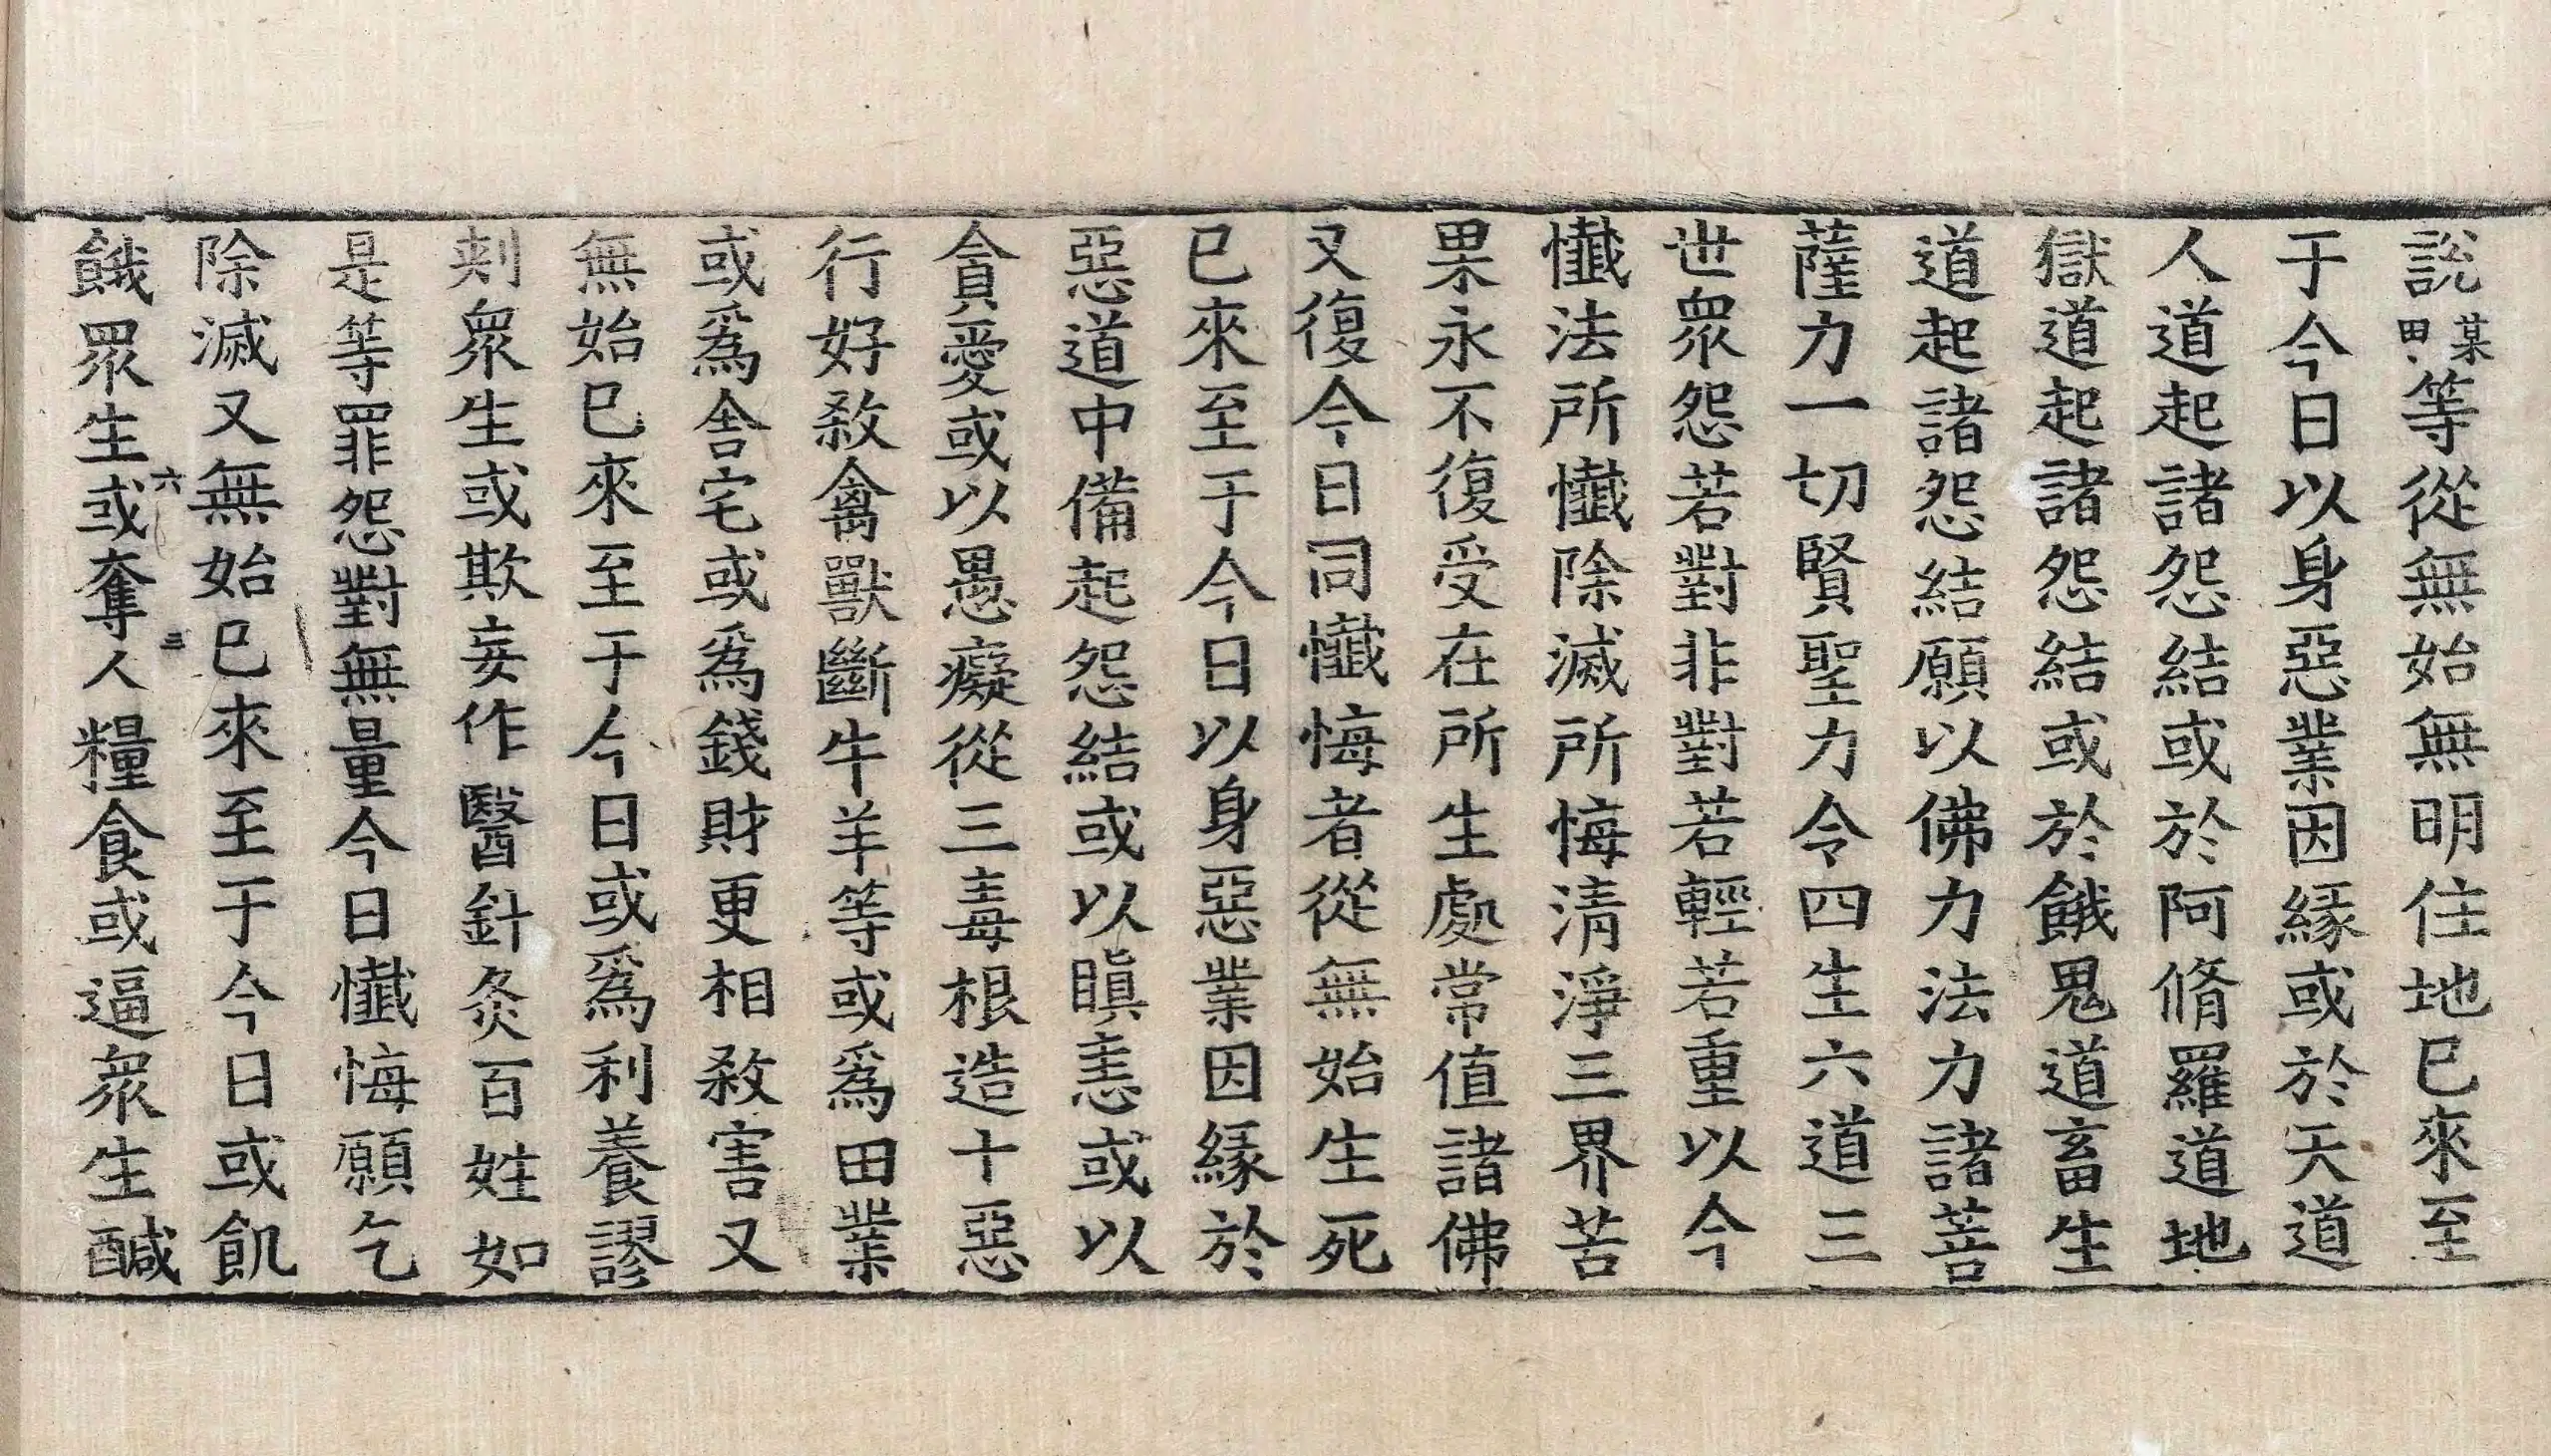 說某甲等從無始無明住地已來至
于今日以身惡業因緣或於天道
人道起諸怨結或於阿脩羅道地
獄道起諸怨結或於餓鬼道畜生
道起諸怨結願以佛力法力諸菩
薩力一切賢聖力令四生六道三
世衆怨若對非對若輕若重以今
懺法所懺除滅所悔清淨三界苦
果永不復受在所生處常值諸佛
又復今日同懺悔者從無始生死
已來至于今日以身惡業因緣於
惡道中備起怨結或以瞋恚或以
貪愛或以愚癡從三毒根造十惡
行好殺禽獸斷牛羊等或爲田業
或爲舍宅或爲錢財更相殺害又
無始已來至于今日或爲利養謬
刾衆生或欺妄作醫針灸百姓如
是等罪怨對無量今日懺悔願乞
除滅又無始已來至于今日或飢
六 三
餓眾生或奪人糧食或逼衆生醎